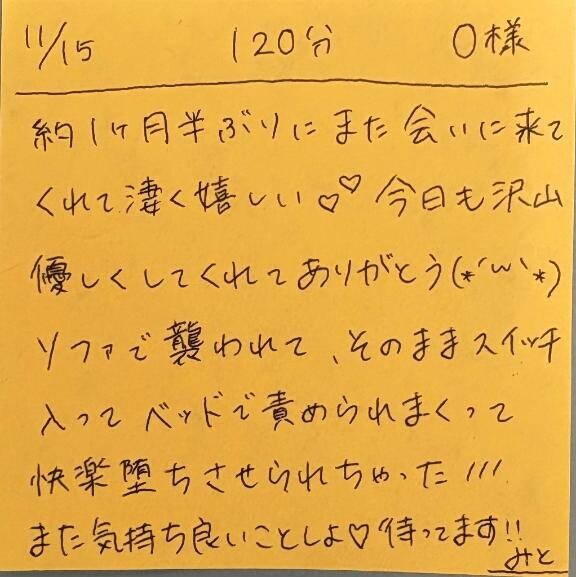 11/15 120分 O様
約1ヶ月半ぶりにまた会いに来て
くれて凄く嬉しい♡♡ 今日も沢山
優しくしてくれてありがとう(*´ω`*)
ソファで襲われて、そのままスイッチ
入ってベッドで責められまくって
快楽堕ちさせられちゃった///
また気持ち良いことしよ♡待ってます!!
みと